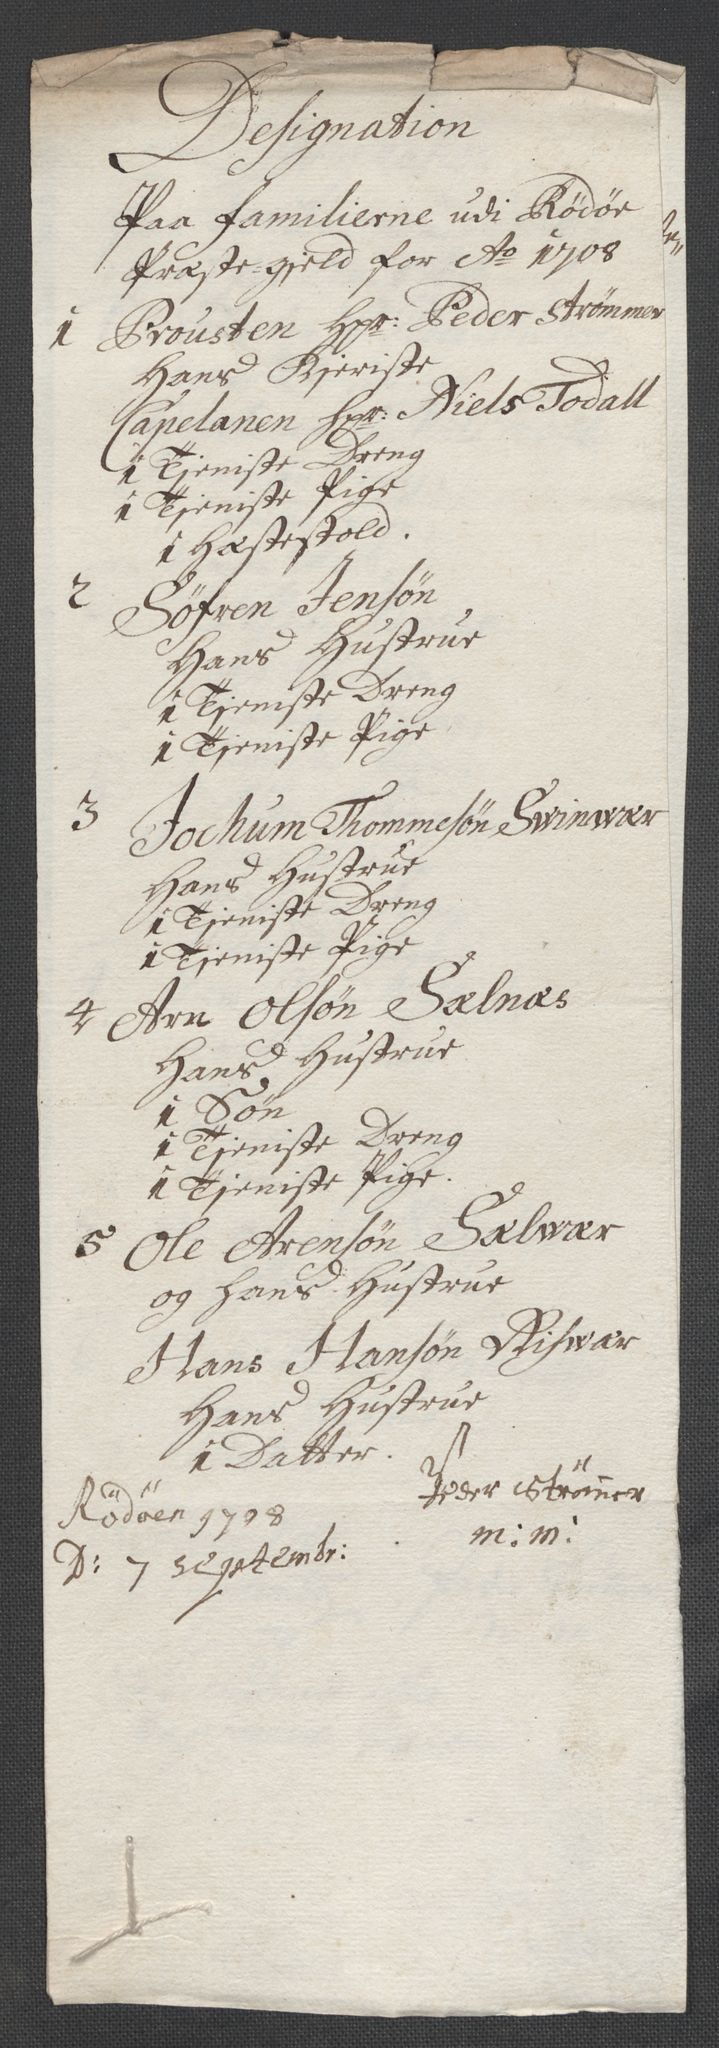 Designation
Paa familierne udi Rödöe
Præste-gield for Ao 1708
1 Prousten hr: Peder Strömmer
Hans Kieriste
Capelanen hr: Niels Todall
1 Tjeniste Dreng
1 Tjeniste Pige
1 Hæstestold.
2 Söfren Jensön
Hans Hustrue
1 Tjeniste Dreng
1 Tjeniste Pige
3 Jochum Thommesön Swinwær
Hans Hustrue
1 Tjeniste Dreng
1 Tjeniste Pige
4 Arn Olsön Sælnæs
Hans Hustrue
1 Sön
1 Tjeniste Dreng
1 Tjeniste Pige.
5 Ole Arensön Sælwær
og hans Hustrue
Hans Hansön Riswær
Hans Hustrue
1 Datter.
Rödöen 1708
D: 7 Septembr:
Peder Strömer
m: m: